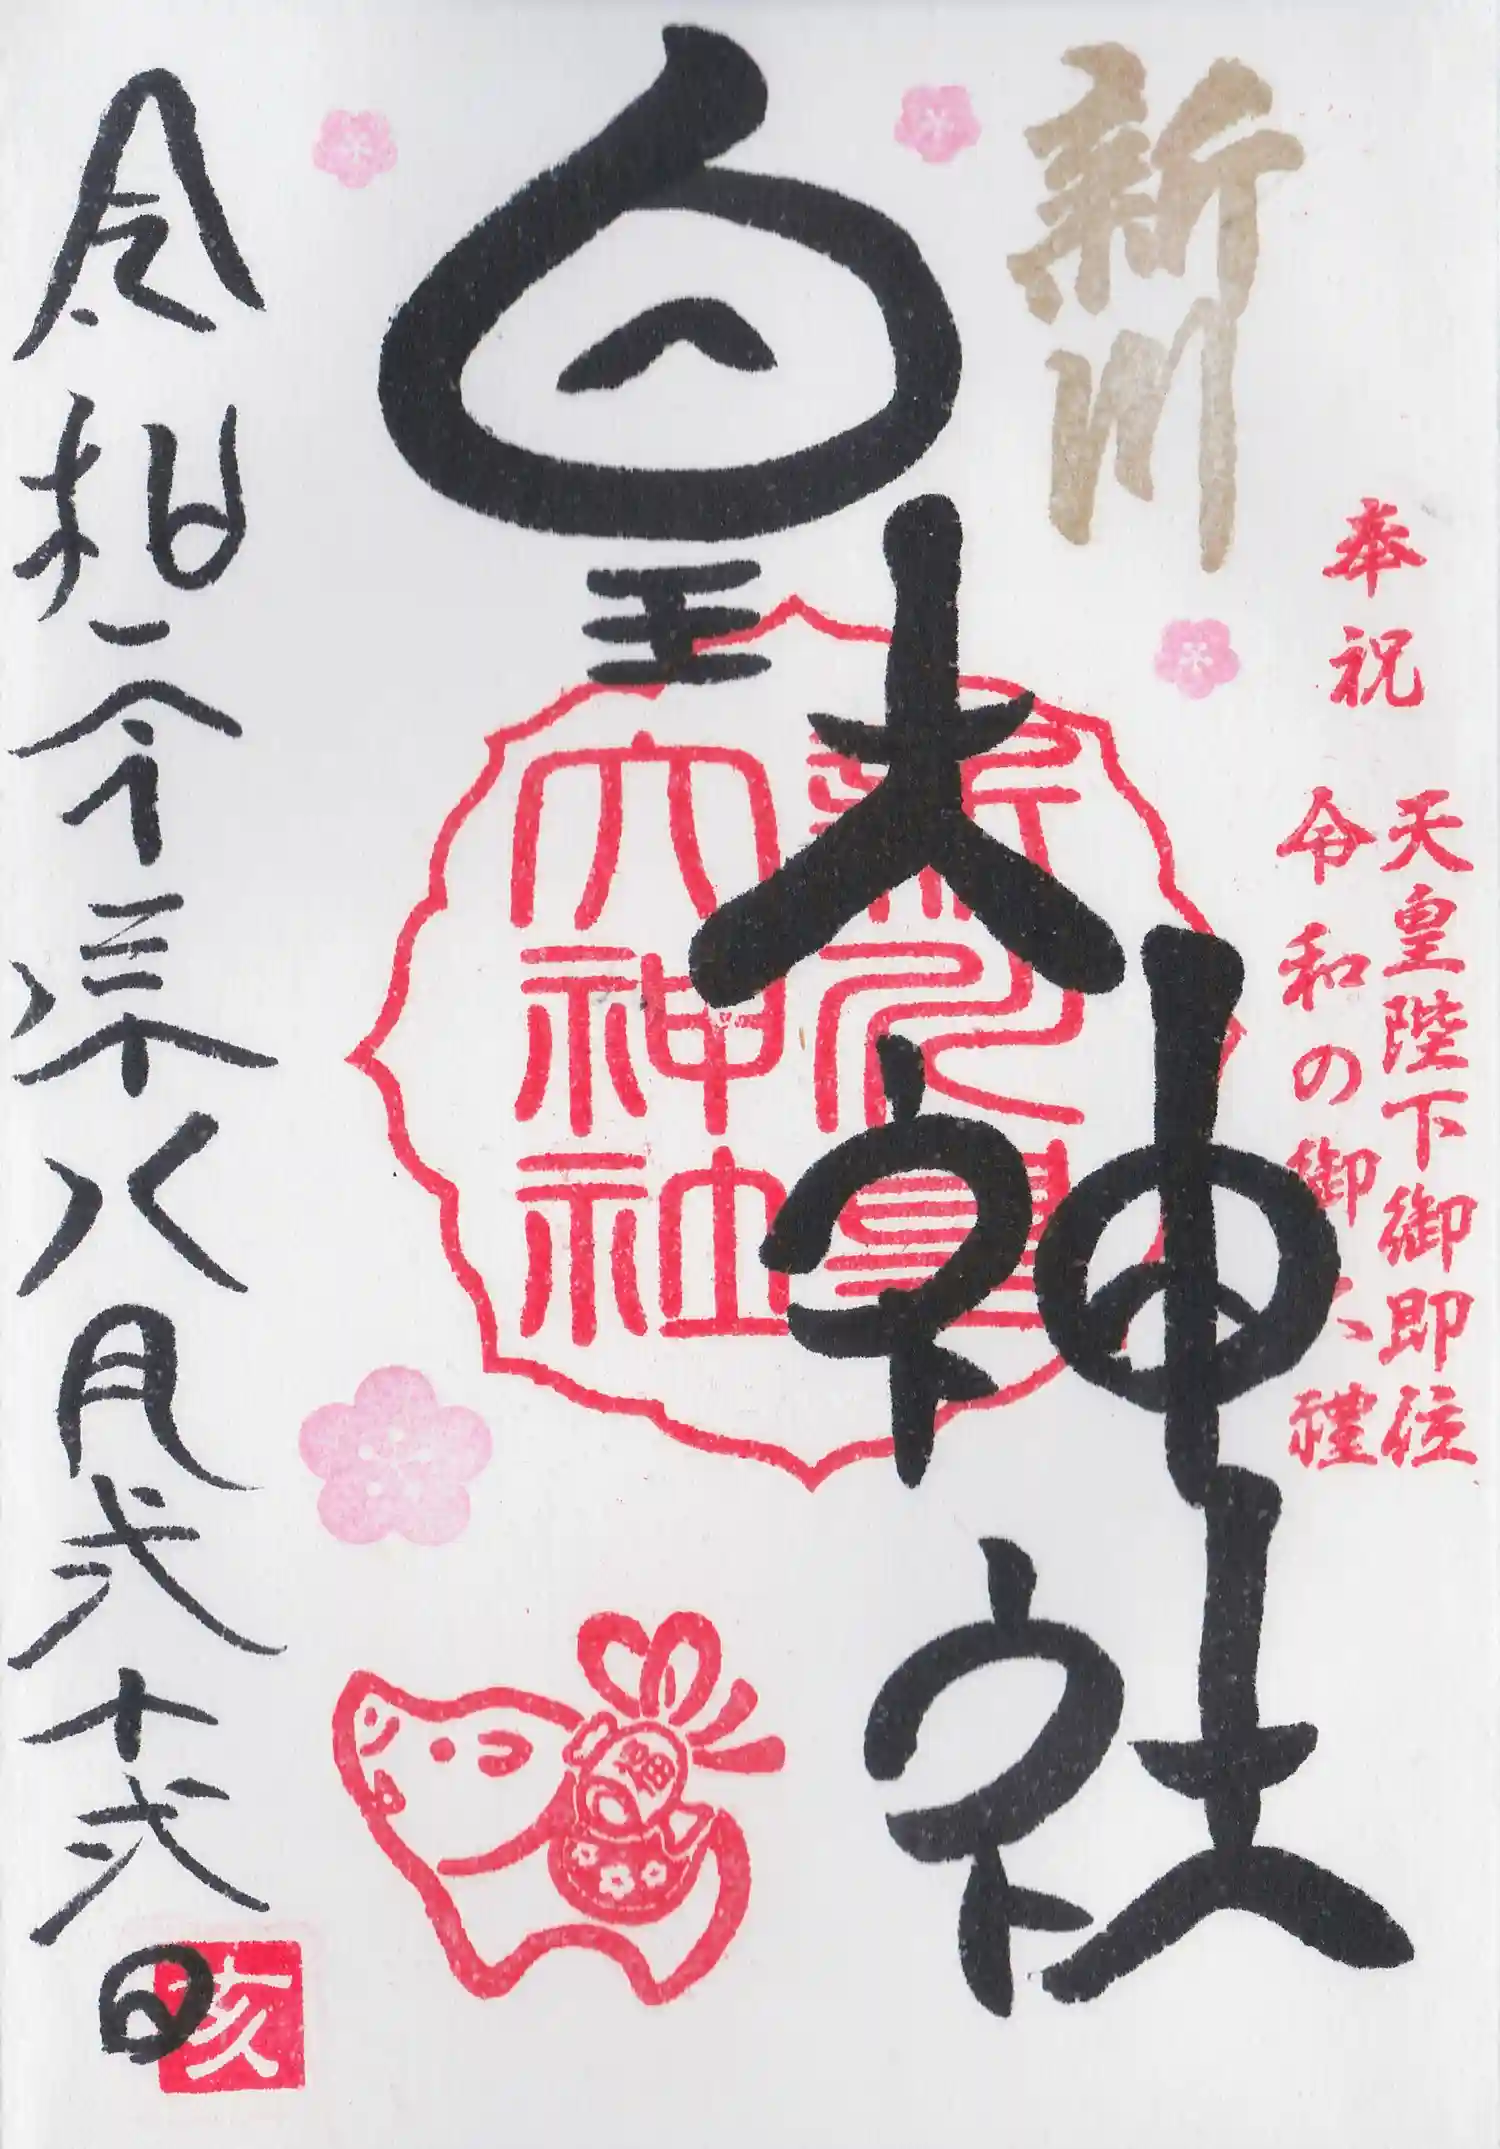 奉祝
天皇陛下御即位
令和の御大禮
新川
皇大神社
新川皇
大神社
福
令和元年八月弐十弐日
亥